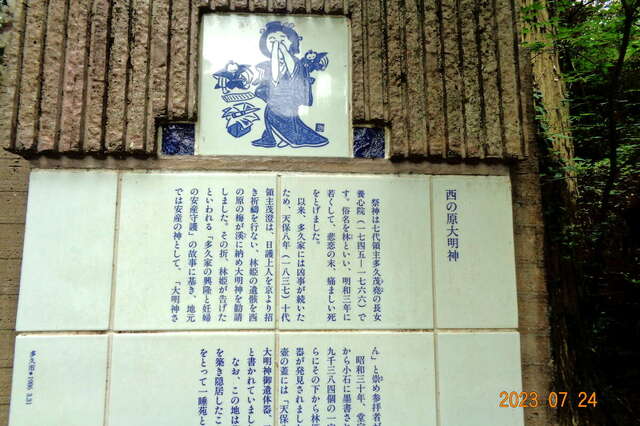 西の原大明神
祭神は七代領主多久茂堯の長女
養心院（一七四五―一七六六）で
す。俗名を林といい、明和三年に
若くして、悲恋の末、痛ましい死
をとげました。
以来、多久家には凶事が続いた
ため、天保八年（一八三七）十代
領主茂澄は、日護上人を京より招
き祈禱を行ない、林姫の遺骸を西
の原の梅が溪に納め大明神を勧請
しました。その折、林姫が告げた
といわれる「多久家の興隆と妊婦
の安産守護」の故事に基き、地元
では安産の神として、「大明神さ
ん」と崇め参拝者が
昭和三十年、堂宇
から小石に墨書さ
九千三八四個の一
らにその下から林
器が発見されまし
壺の蓋には「天保
大明神御遺体器、
と書かれていまし
なお、この地は
を築き隠居したこ
をとって一睡苑と
多久市 1986. 3.31
2023 07 24